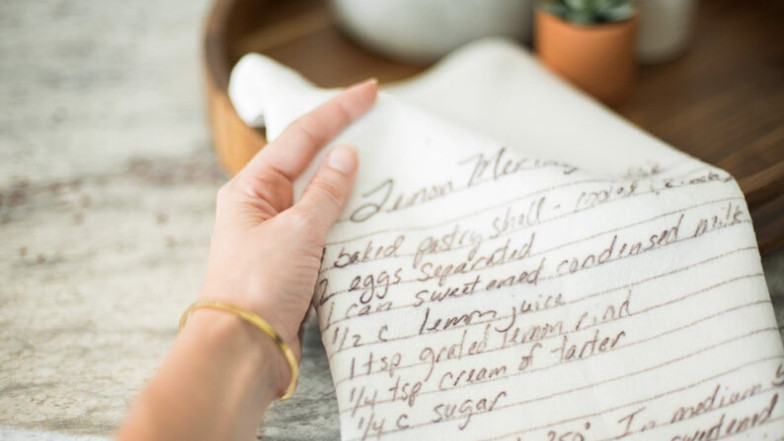 Lemon
1 baked pastry shell -
2 eggs separated
1 can sweetened condensed milk
1/2 c lemon juice
1 tsp grated lemon rind
1/4 tsp cream of tarter
1/4 c sugar
350° In medium